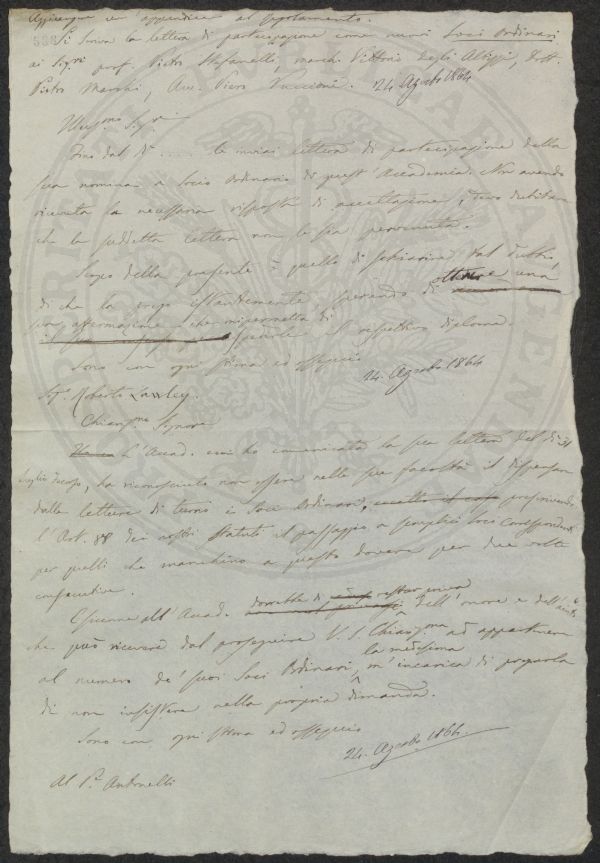 Aggiungere in appendice al Regolamento.
Si scriva la lettera di partecipazione come nuovi Soci Ordinari
ai Sigri prof. Pietro Stefanelli, march. Vittorio degli Albizzi, Dott.
Pietro Marchi, Avv. Piero Puccioni. 24 Agosto 1864
Illusmo Sigre
Fino dal dì ...... le inviai lettera di partecipazione della
sua nomina a Socio Ordinario di quest'Accademia. Non avendo
ricevuta la necessaria risposta di accettazione, devo dubitare
che la suddetta lettera non le sia pervenuta.
Scopo della presente è quello di schiarire tal dubbio
di che la prego istantemente sperando di ottenere una
affermazione che mi permetta di
spedirle il respettivo diploma.
Sono con ogni stima ed ossequio
24. Agosto 1864
Sigr Roberto Lawley.
Chiarmo Signore
L'Accad. cui ho comunicata la sua lettera del dì 31
Luglio decorso, ha riconosciuto non essere nelle sue facoltà il dispensare
dalle letture di turno i Soci Ordinari, prescrivendo
l'Art. 88 dei nostri statuti il passaggio a semplici Soci Corrispondenti
per quelli che manchino a questo dovere per due volte
consecutive.
all'Accad. dovrebbe di restar priva
dell'onore e dell'aiuto
che può ricevere dal proseguire V. S. Chiarma ad appartenere
al numero de' suoi Soci Ordinari, la medesima m'incarica di pregarla
di non insistere nella propria dimanda.
Sono con ogni stima ed ossequio
24. Agosto 1864.
Al Pe Antonelli